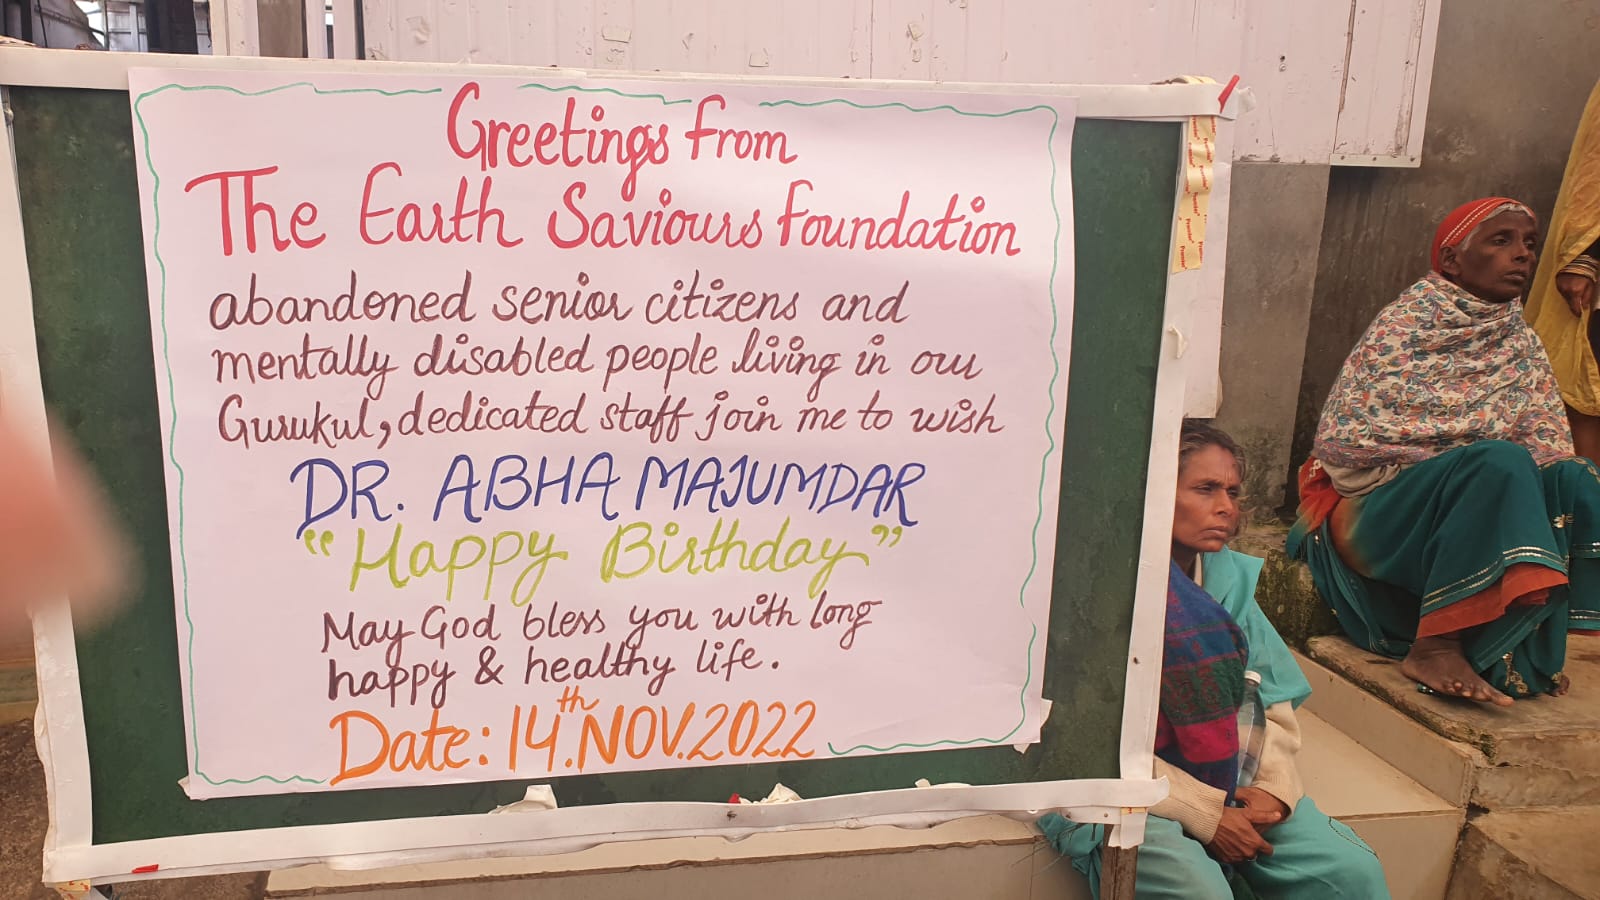 Greetings from
The Earth Saviours Foundation
abandoned senior citizens and
mentally disabled people living in our
Gurukul, dedicated staff join me to wish
DR. ABHA MAJUMDAR
“Happy Birthday”
May God bless you with long
happy & healthy life.
Date: 14th. NOV. 2022
Premier
Premier
Premier